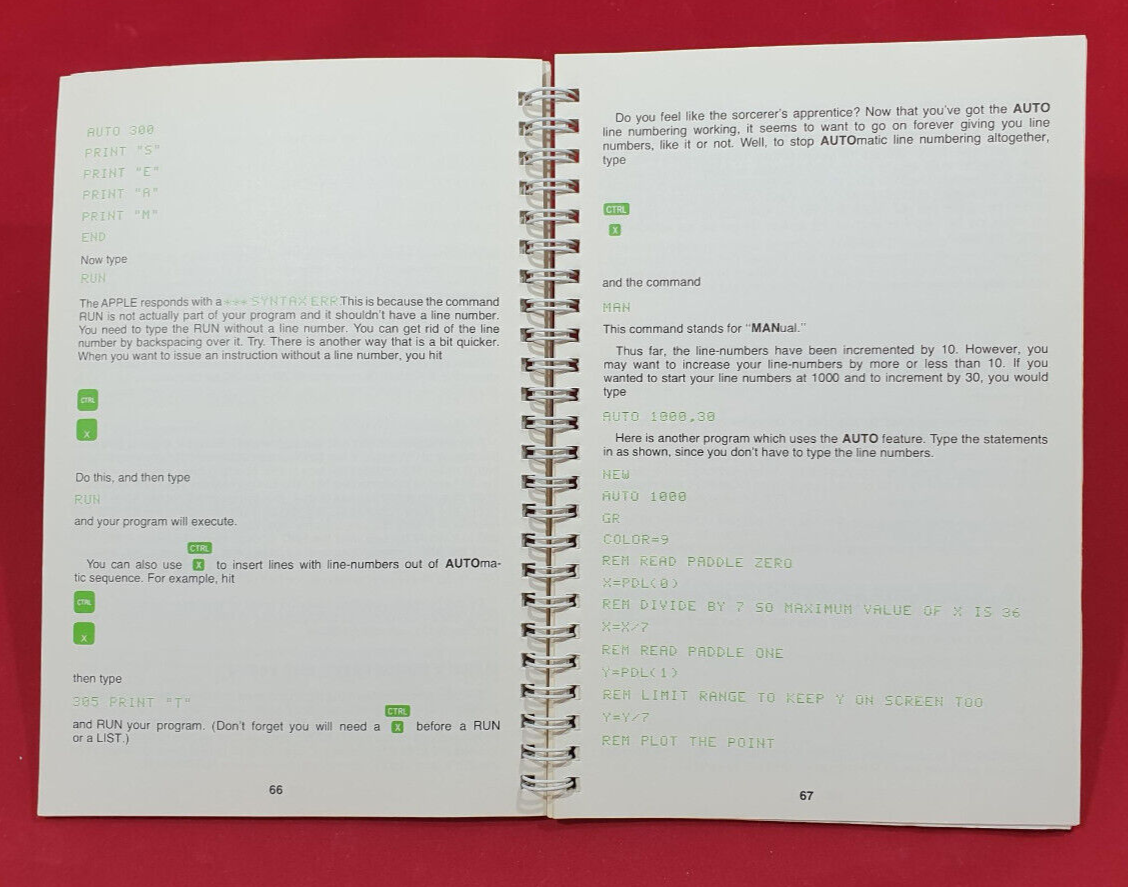 AUTO 300
PRINT "S"
PRINT "E"
PRINT "A"
PRINT "M"
END
Now type
RUN
The APPLE responds with a *** SYNTAX ERR.This is because the command
RUN is not actually part of your program and it shouldn't have a line number.
You need to type the RUN without a line number. You can get rid of the line
number by backspacing over it. Try. There is another way that is a bit quicker.
When you want to issue an instruction without a line number, you hit
CTRL
X
Do this, and then type
RUN
and your program will execute.
CTRL
You can also use X to insert lines with line-numbers out of AUTOma-
tic sequence. For example, hit
CTRL
X
then type
305 PRINT "T"
CTRL
and RUN your program. (Don't forget you will need a X before a RUN
or a LIST.)
66
Do you feel like the sorcerer's apprentice? Now that you've got the AUTO
line numbering working, it seems to want to go on forever giving you line
numbers, like it or not. Well, to stop AUTOmatic line numbering altogether,
type
CTRL
X
and the command
MAN
This command stands for "MANual."
Thus far, the line-numbers have been incremented by 10. However, you
may want to increase your line-numbers by more or less than 10. If you
wanted to start your line numbers at 1000 and to increment by 30, you would
type
AUTO 1000,30
Here is another program which uses the AUTO feature. Type the statements
in as shown, since you don't have to type the line numbers.
NEW
AUTO 1000
GR
COLOR=9
REM READ PADDLE ZERO
X=PDL(0)
REM DIVIDE BY 7 SO MAXIMUM VALUE OF X IS 36
X=X/7
REM READ PADDLE ONE
Y=PDL(1)
REM LIMIT RANGE TO KEEP Y ON SCREEN TOO
Y=Y/7
REM PLOT THE POINT
67